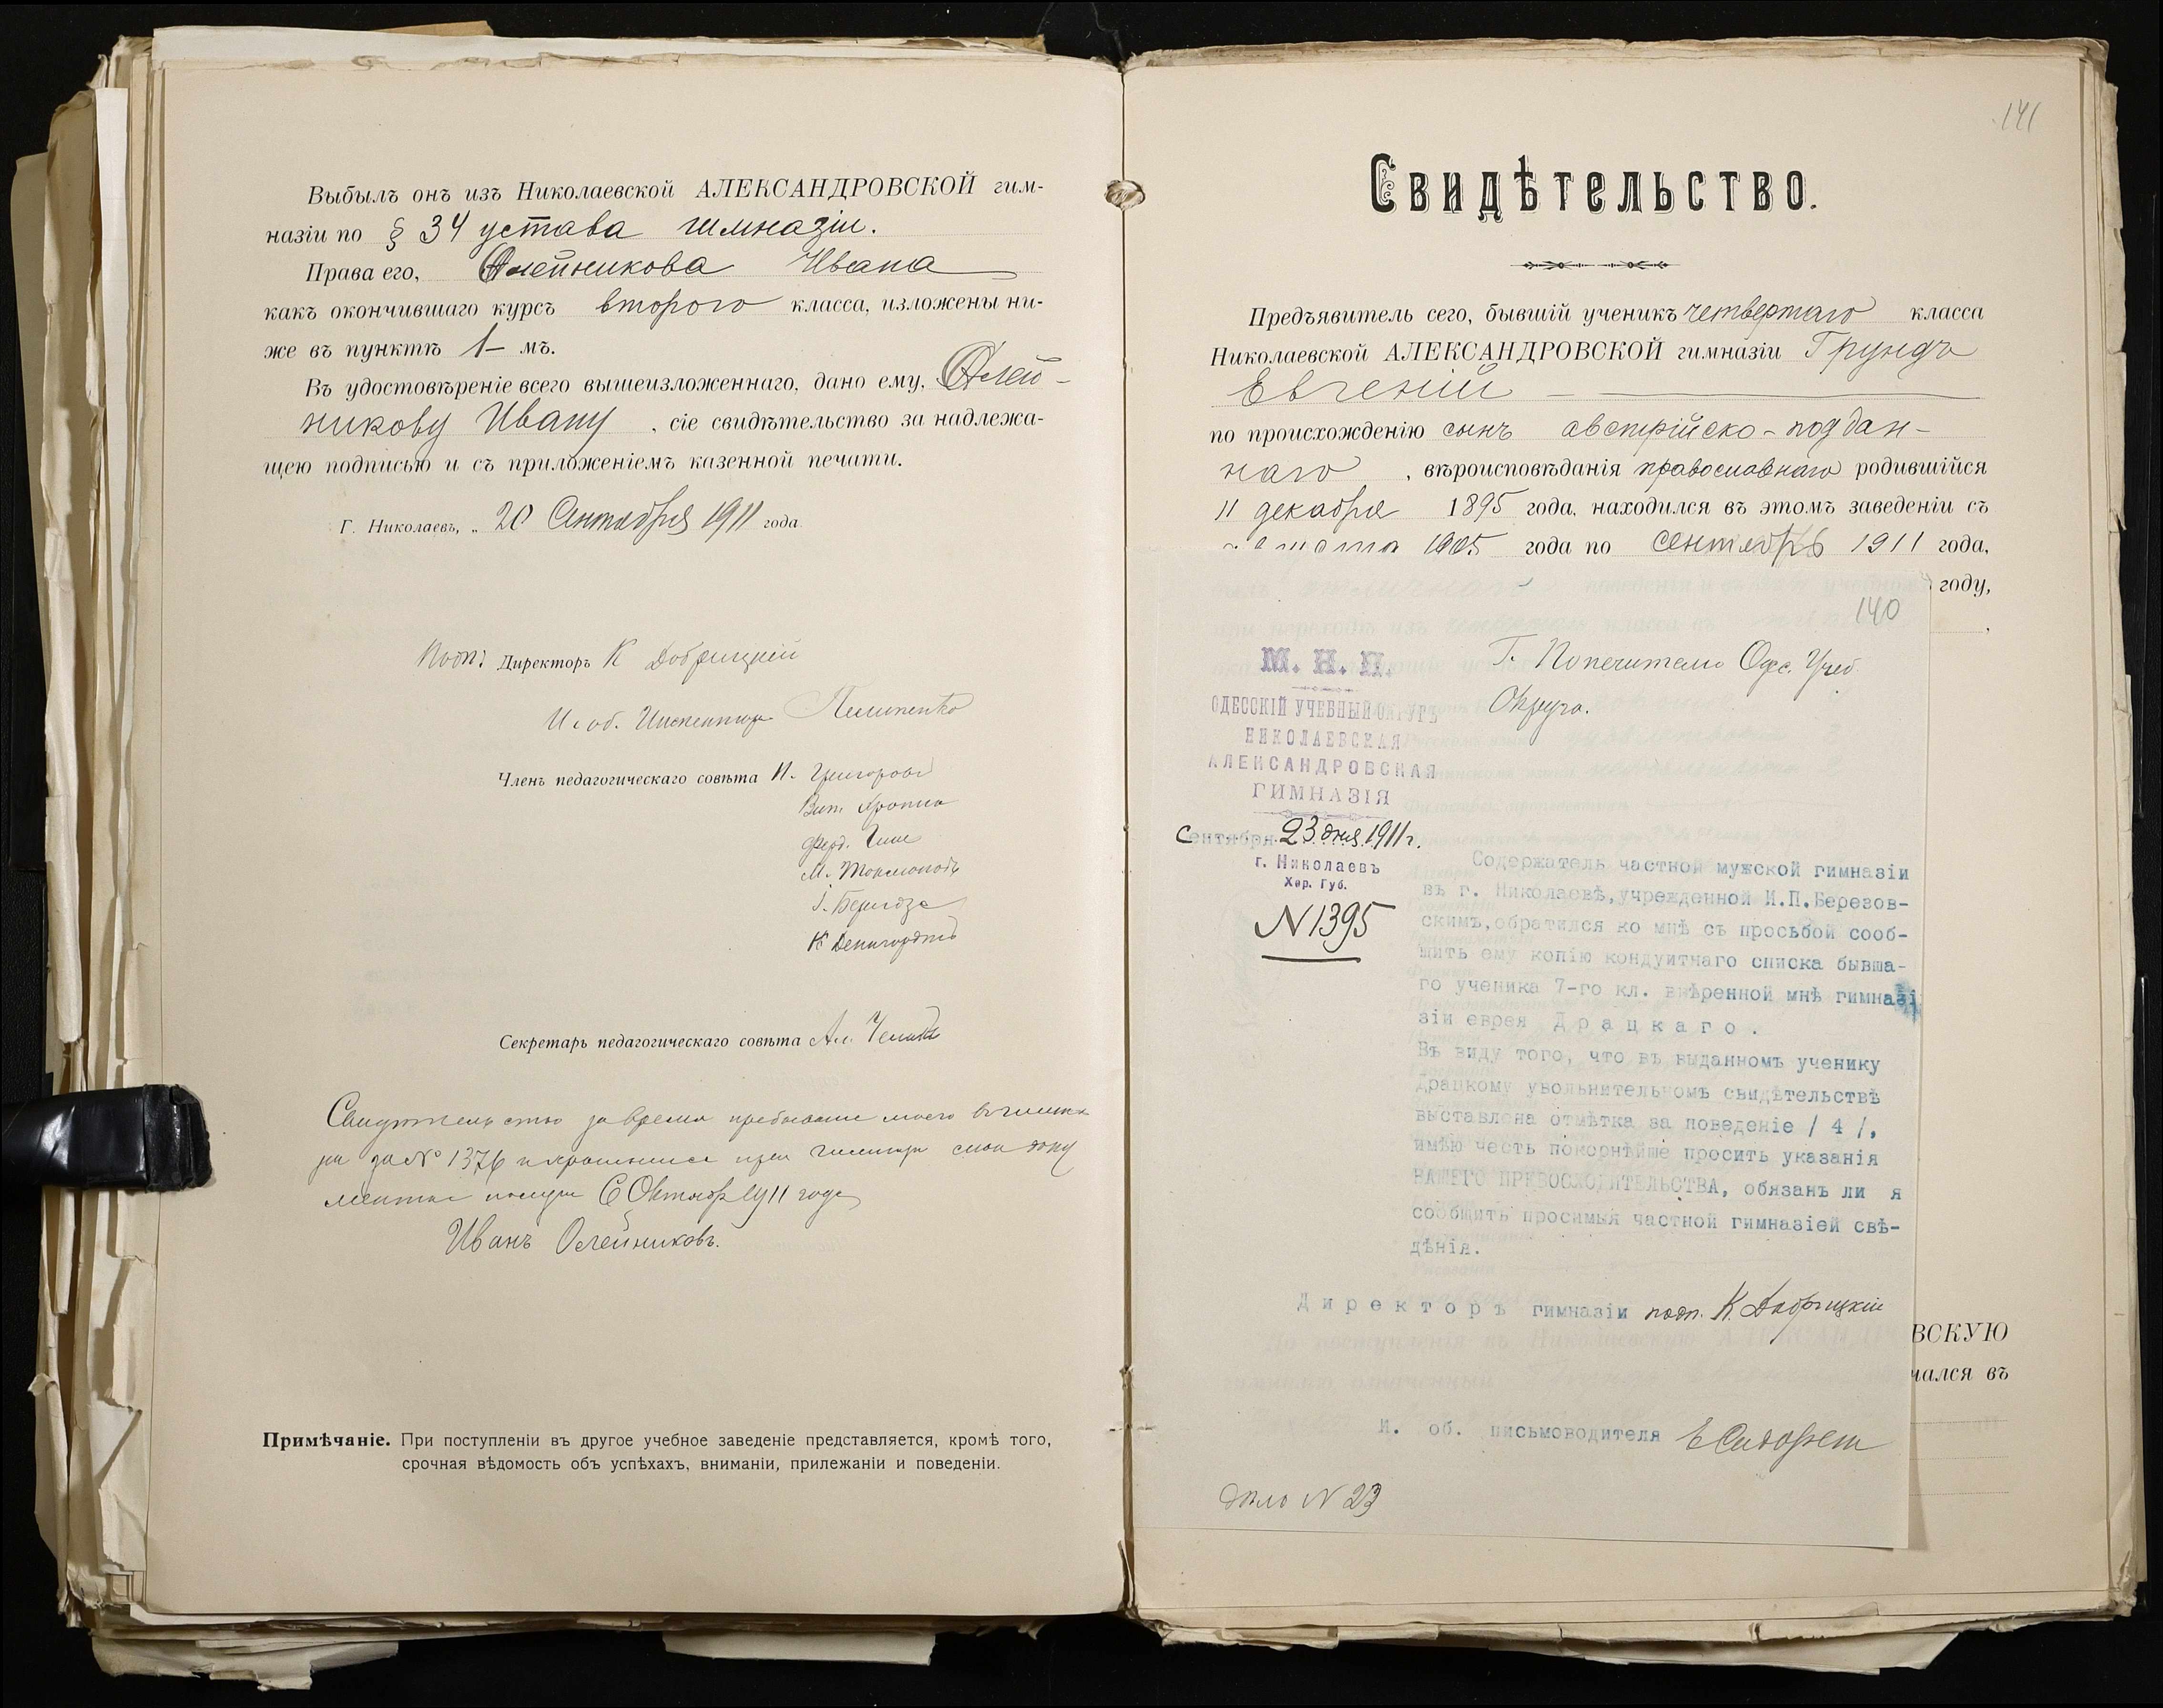 Выбылъ онъ изъ Николаевской АЛЕКСАНДРОВСКОЙ гим-
назіи по § 34 устава гимназіи.
Права его, Олейникова Ивана
какъ окончившаго курсъ второго класса, изложены ни-
же въ пунктѣ 1-мъ.
Въ удостовѣреніе всего вышеизложеннаго, дано ему, Олей-
никову Ивану, сіе свидѣтельство за надлежа-
щею подписью и съ приложеніемъ казенной печати.
Г. Николаевъ, „ 20 Сентября 1911 года
Подп: Директоръ К Добрицкій
И. об. Инспектора
Членъ педагогическаго совѣта И. Григоровъ
К
Секретарь педагогическаго совѣта Ал.
Свидѣтельство за время пребыванія моего
за № 1376 и
6 Октября 1911 года
Иванъ Олейниковъ.
Примѣчаніе. При поступленіи въ другое учебное заведеніе представляется, кромѣ того,
срочная вѣдомость объ успѣхахъ, вниманіи, прилежаніи и поведеніи.
141
Свидѣтельство.
Предъявитель сего, бывшій ученикъ четвертаго класса
Николаевской АЛЕКСАНДРОВСКОЙ гимназіи Грундъ
Евгеній
по происхожденію сынъ австрійско-поддан-
наго, вѣроисповѣданія православнаго родившійся
11 декабря 1895 года, находился въ этомъ заведеніи съ
1905 года по сентябрь 1911 года,
году,
140
Г. Попечителю Одес. Учеб.
Округа.
М. Н. П.
ОДЕССКІЙ УЧЕБНЫЙ ОКРУГЪ
НИКОЛАЕВСКАЯ
АЛЕКСАНДРОВСКАЯ
ГИМНАЗІЯ
Сентября 23 дня 1911 г.
г. Николаевъ
Хер. Губ.
N 1395
Содержатель частной мужской гимназіи
въ г. Николаевѣ, учрежденной И.П.Березов-
скимъ, обратился ко мнѣ съ просьбой сооб-
щить ему копію кондуитнаго списка бывша-
го ученика 7-го кл. ввѣренной мнѣ гимназі
зіи еврея Драцкаго.
Въ виду того, что въ выданномъ ученику
Драцкому увольнительномъ свидѣтельствѣ
выставлена отмѣтка за поведеніе / 4 /,
имѣю честь покорнѣйше просить указанія
ВАШЕГО ПРЕВОСХОДИТЕЛЬСТВА, обязанъ ли я
сообщить просимыя частной гимназіей свѣ-
дѣнія.
Директоръ гимназіи подп. К. Добрицкій
ВСКУЮ
чался въ
И. об. письмоводителя
дѣло N 23